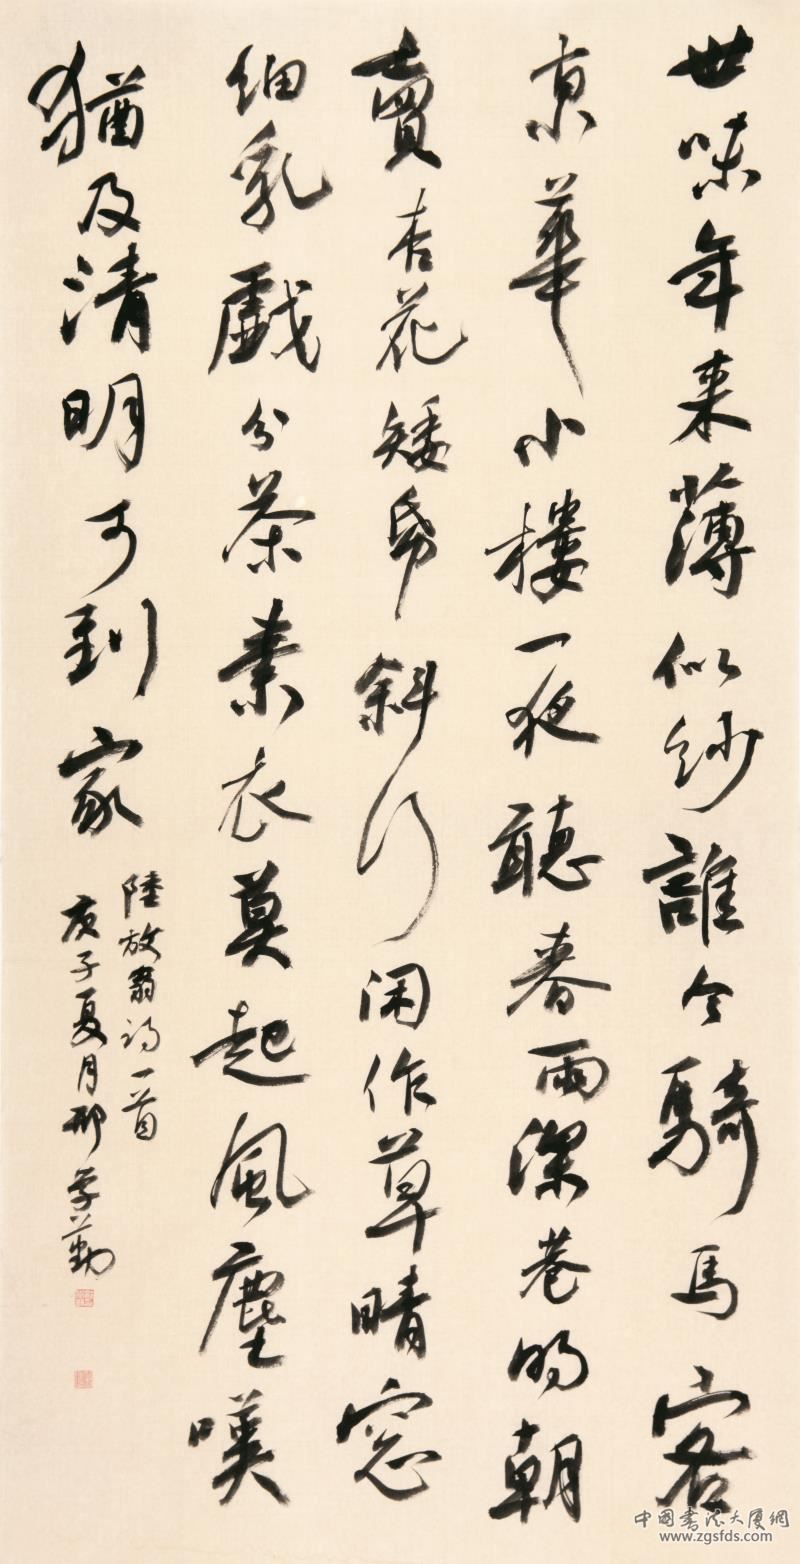 世味年来薄似紗誰令騎馬客
京華小樓一夜聽春雨深巷明朝
賣杏花矮帋斜行閑作草晴窓
細乳戲分茶素衣莫起風塵嘆
猶及清明可到家
陸放翁詩一首
庚子夏月邢學勤
中国書法大厦網
www.zgsfds.com